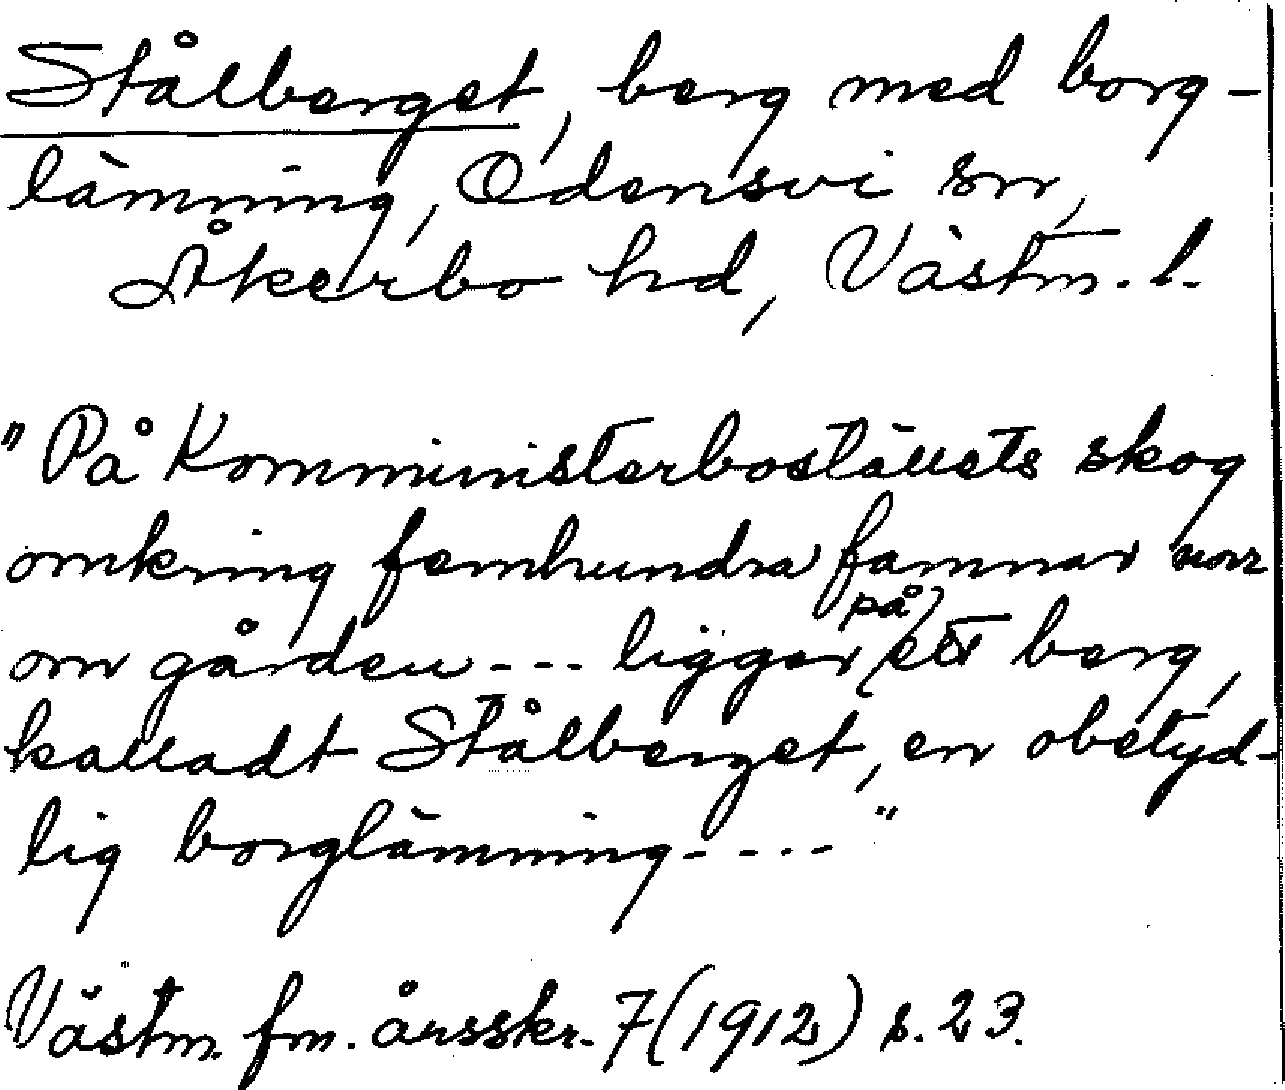 Stålberget, berg med borg-
lämning, Odensvi sn,
Åkerbo hd, Västm. l.
"På Komministerboställets skog
omkring femhundra famnar norr
om gården --- ligger på ett berg,
kalladt Stålberget, en obetyd-
lig borglämning----"
Västm. fm. årsskr. 7 (1912) s. 23.